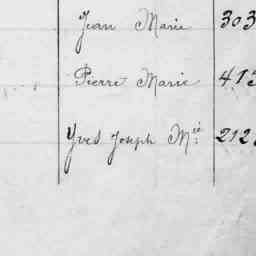 Jean Marie 303
Pierre Marie 413
Yves Joseph Mie 212